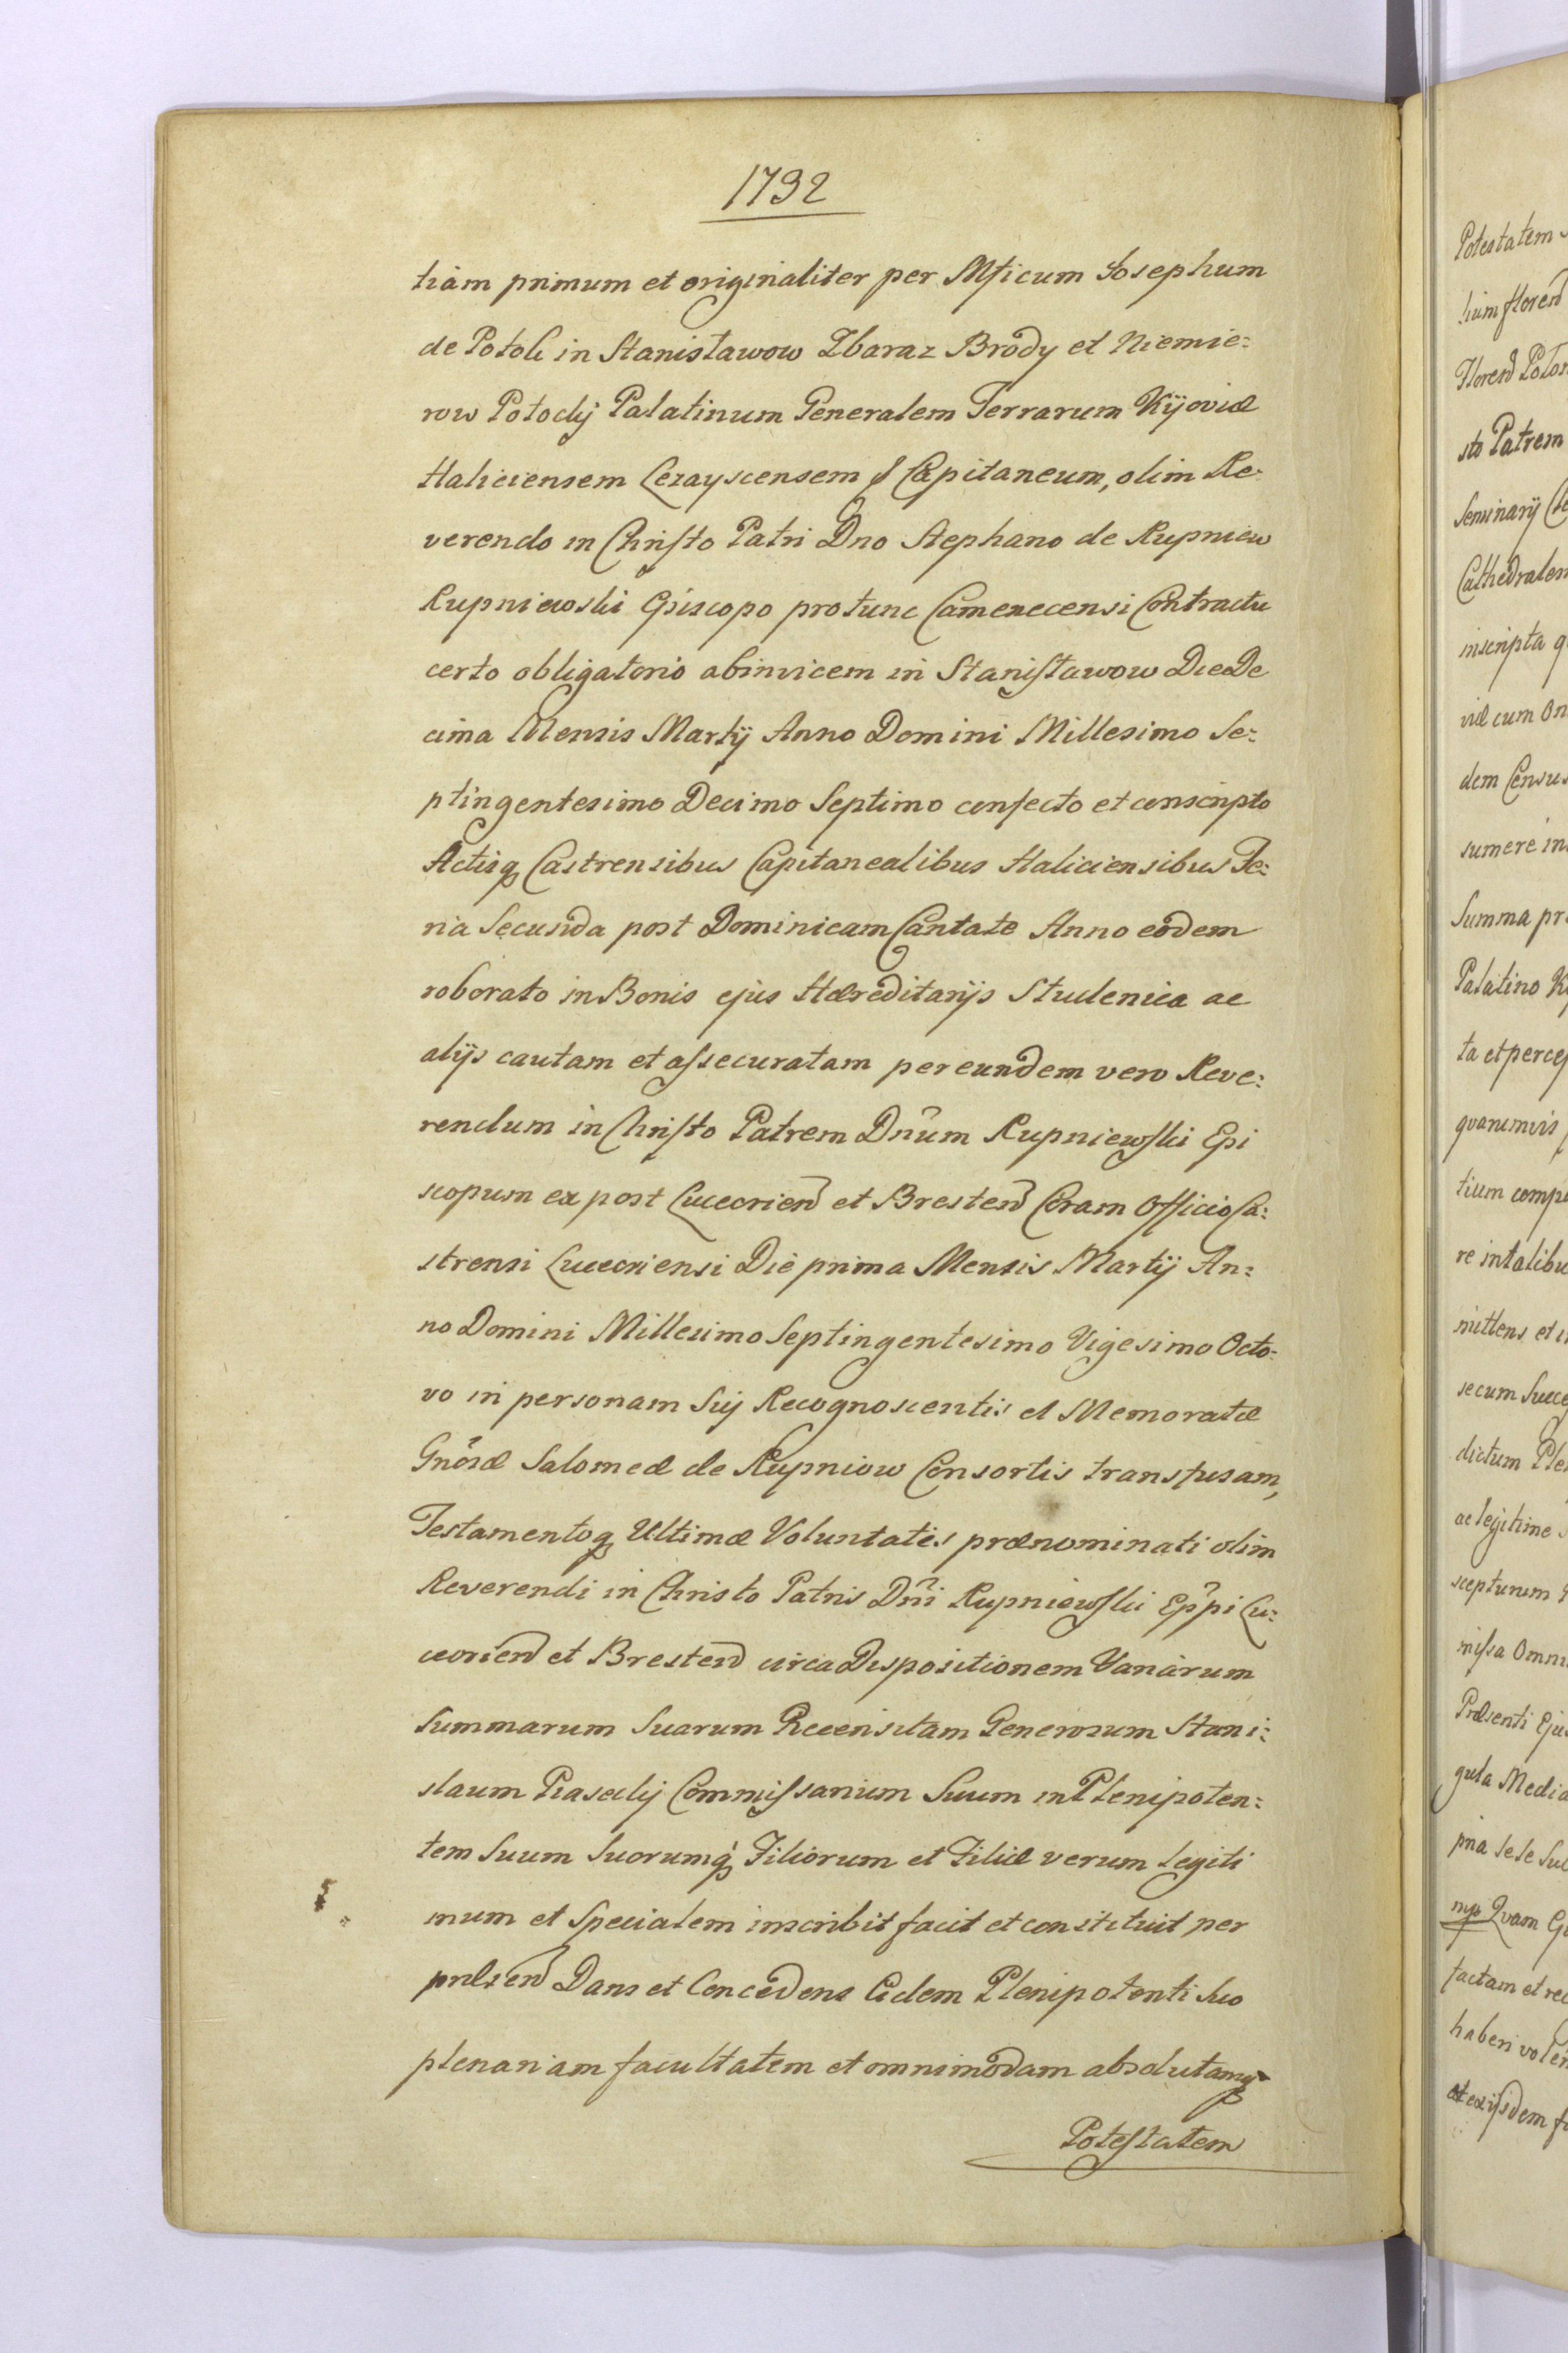 1792
tiam primum et originaliter per Mficum Josephum
de Potok in Stanisławow Zbaraz Brody et Niemie:
row Potocki Palatinum Generalem Terrarum Kijoviæ
Haliciensem Lezayscensem & Capitaneum, olim Re:
verendo in Christo Patri Dno Stephano de Rupniew
Rupniewski Episcopo protunc Camenecensi Contractu
certo obligatorio abinvicem in Stanisławow Die De
cima Mensis Martij Anno Domini Millesimo Se:
ptingentesimo Decimo Septimo confecto et conscripto
Actisq Castrensibus Capitanealibus Haliciensibus Fe:
ria Secunda post Dominicam Cantate Anno eodem
roborato in Bonis ejus Hæreditarijs Studenica ac
alijs cautam et assecuratam per eundem vero Reve:
rendum in Christo Patrem Dnum Rupniewski Epi
scopum ex post Luceorien et Bresten Coram Officio Ca:
strensi Luceoriensi Die prima Mensis Martij An:
no Domini Millesimo Septingentesimo Vigesimo Octo:
vo in personam Sui Recognoscentis et Memoratæ
Gnosæ Salomeæ de Rupniow Consortis transfusam,
Testamentoq Ultimæ Voluntatis prænominati olim
Reverendi in Christo Patris Dni Rupniewski Eppi Lu:
ceorien et Bresten circa Dispositionem Variarum
Summarum Suarum Recensitam Generosum Stani:
slaum Commissarium Suum in Plenipoten:
tem Suum Suorumq Filiorum et Filiæ verum legiti
mum et Specialem inscribit facit et constituit per
præsen Dans et Concedens Eidem Plenipotenti Suo
plenariam facultatem et omnimodam absolutamq
Potestatem
Potestatem
tium floren
Floren Polon
sto Patrem
Seminarij
Cathedralem
inscripta
viæ cum
dem Census
sumere
Summa
Palatino
ta et
quantumvis
tium
re in talibus
mittens et
secum
dictum
ac legitime
scepturum
missa
Præsenti
gula
pria sese
mp Quam
factam et
haberi
et ex ijsdem